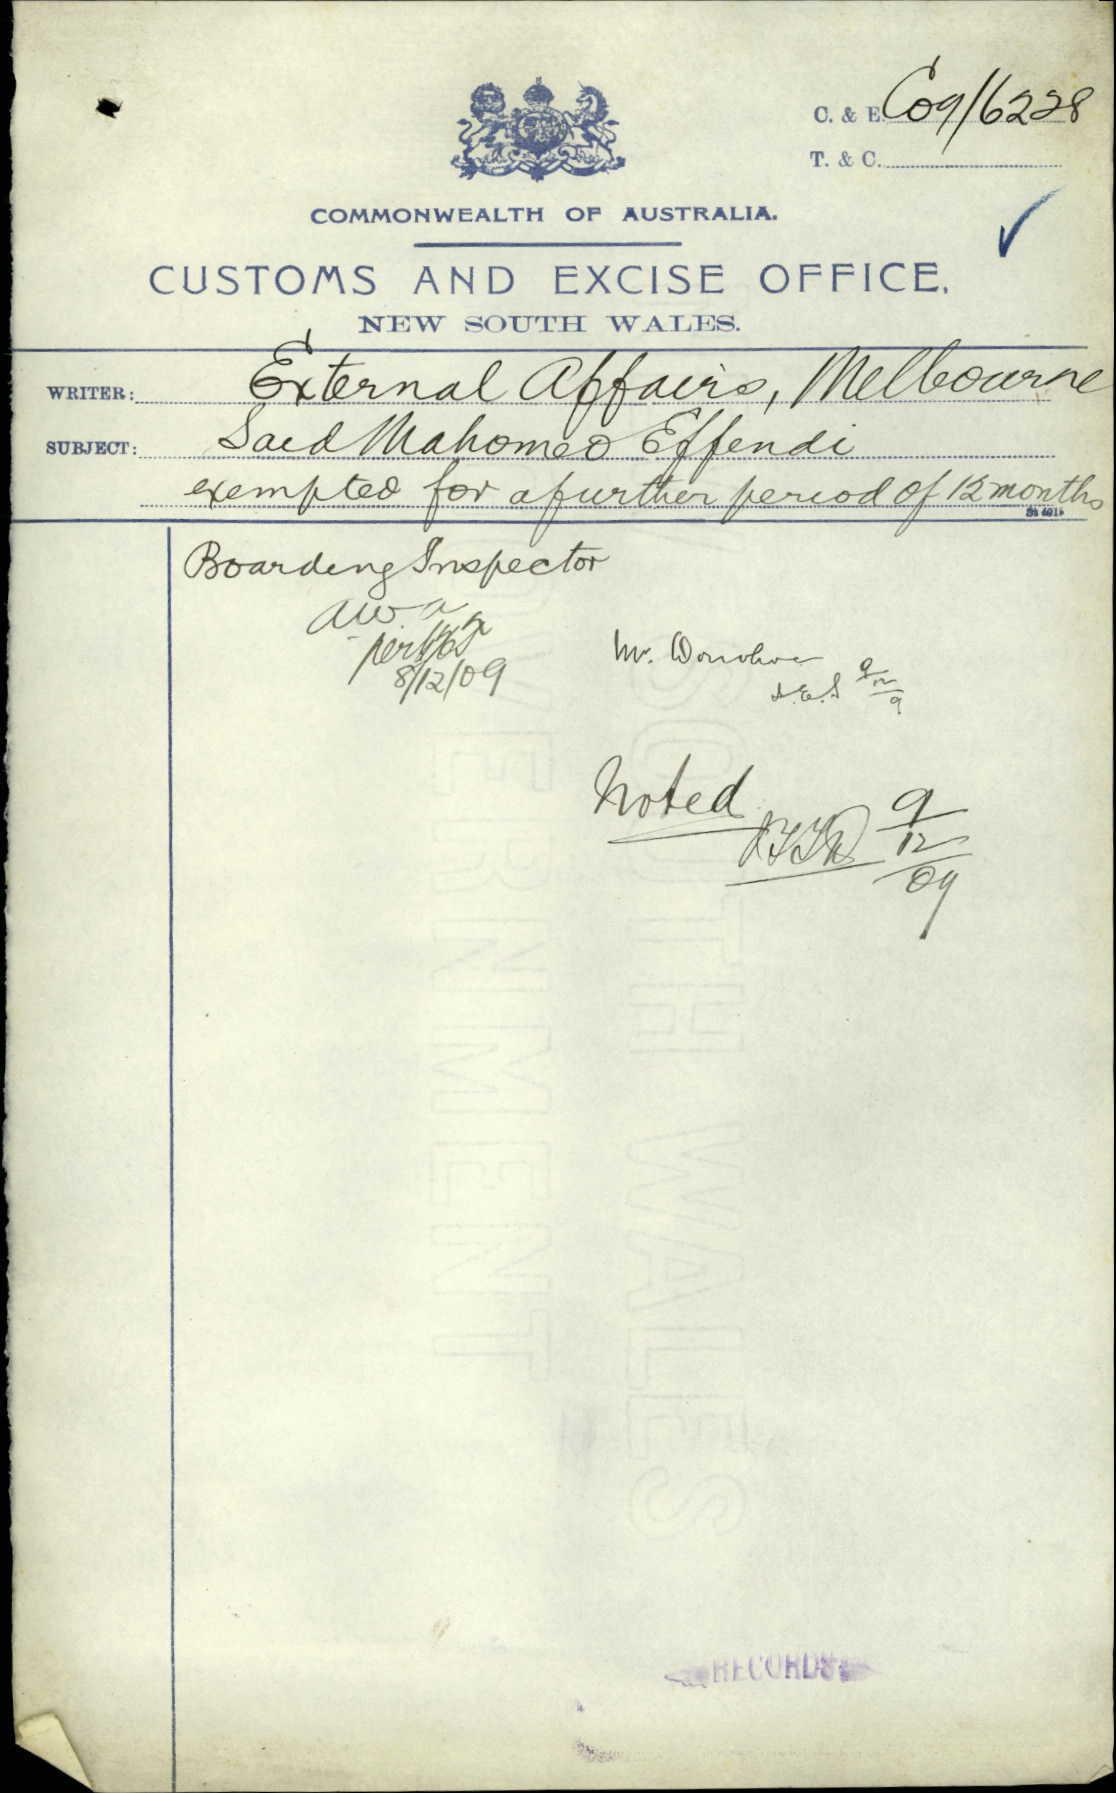 C. & E. C09/6228
T. & C.
COMMONWEALTH OF AUSTRALIA.
CUSTOMS AND EXCISE OFFICE.
NEW SOUTH WALES.
WRITER: External Affairs, Melbourne
SUBJECT: Said Mahomed Effendi
exempted for a further period of 12 months
Boarding Inspector
per
8/12/09
Mr. Donohoe
9/12/9
Noted
9/12/09
NEW SOUTH WALES
GOVERNMENT
RECORDS